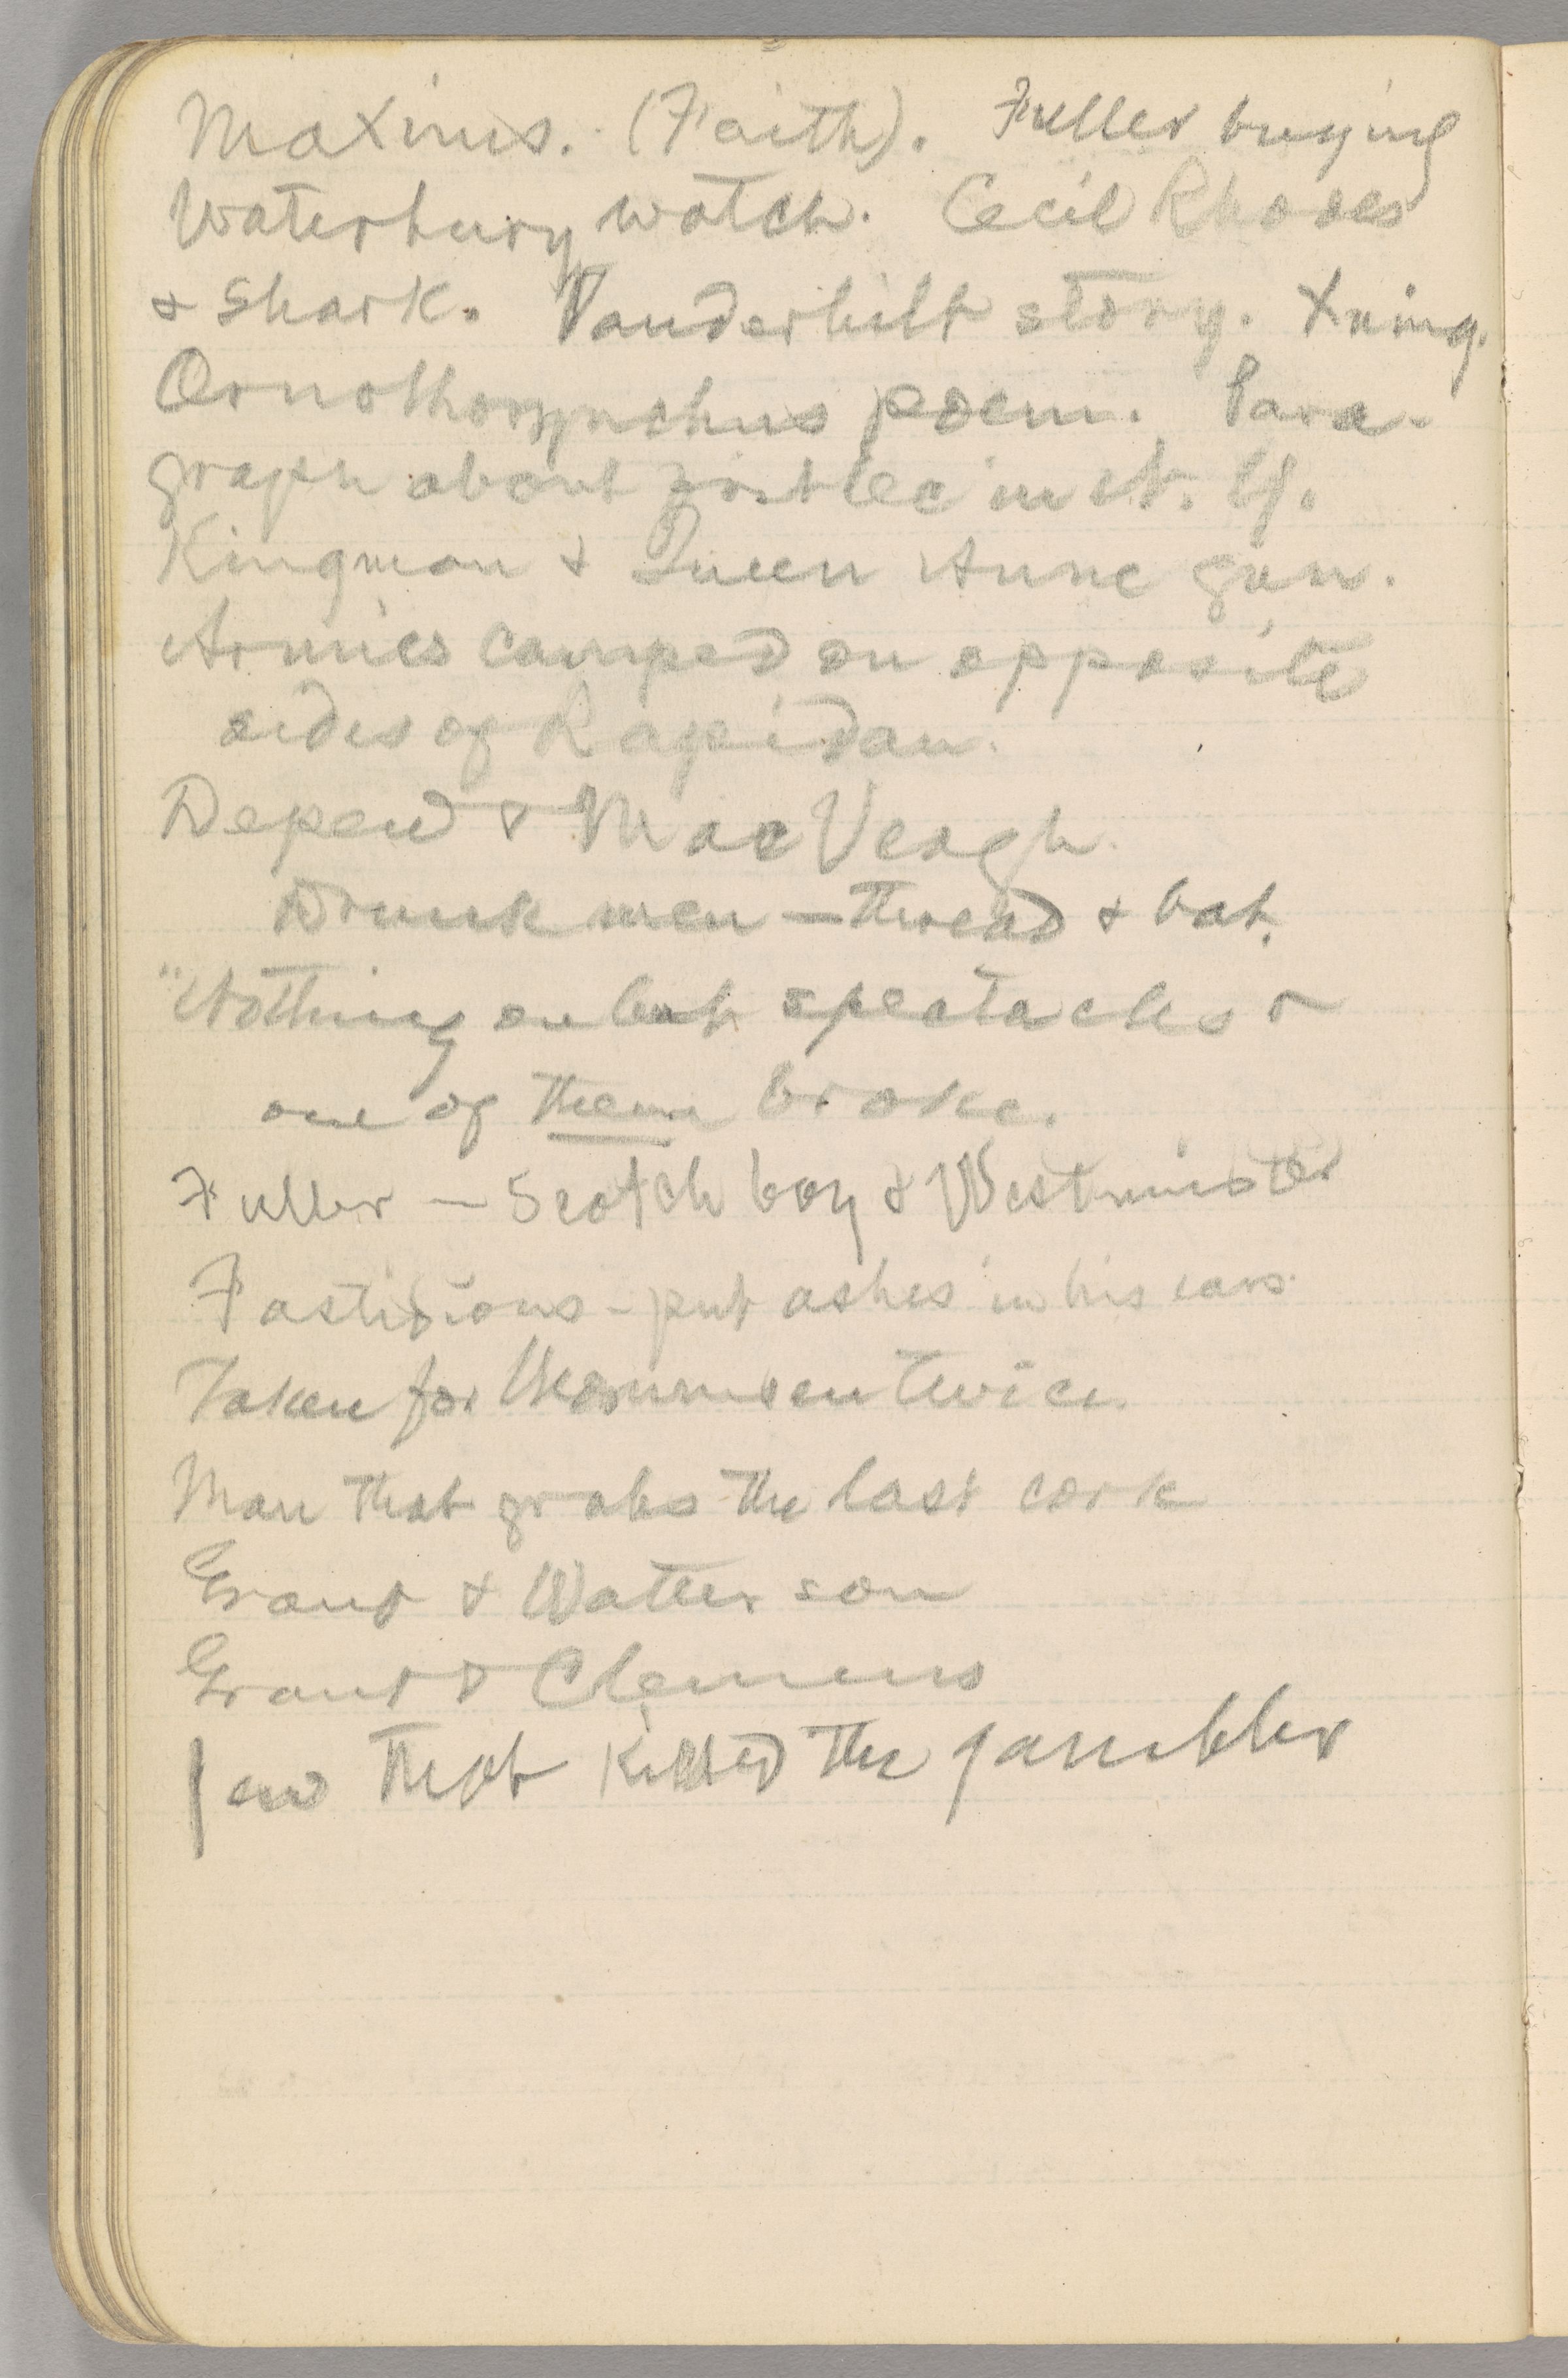 Maxims. (Faith). Fuller buying
Waterbury watch. Cecil Rhodes
& Shark. Vanderbilt story. Xning.
Ornothorynchus poem. Para-
graph about in N. Y.
Kingman & Queen Anne gun.
Armies camped on opposite
sides of Rapidan.
Depew & MacVeagh.
Drunk men — thread & bat.
"Nothing on but spectacles &
one of them broke.
Fuller — Scotch boy & Westminster
Fastidious – put ashes in his ears.
Taken for Mommsen twice.
Man that grabs the last cork
Grant & Watterson
Grant & Clemens
Jew that killed the gambler